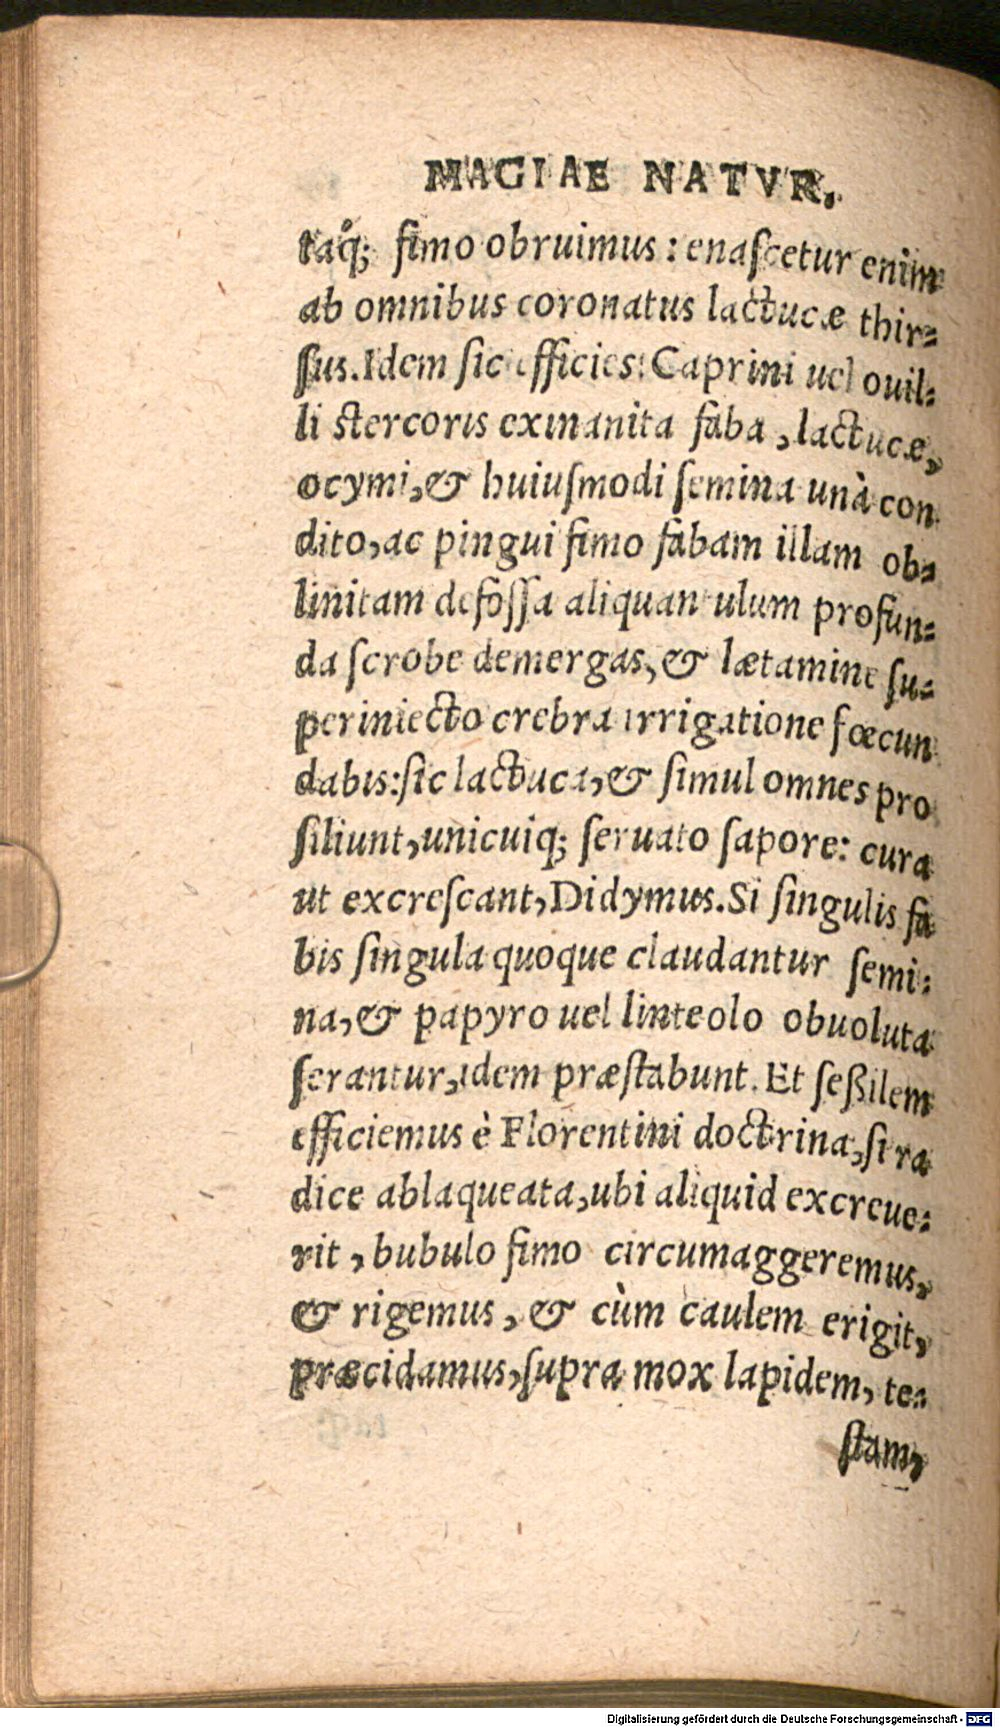 MAGIAE NATVR.
taq́; fimo obruimus: enaſcetur enim
ab omnibus coronatus lactucæ thir-
ſus. Idem ſic efficies: Caprini uel ouil-
li ſtercoris exinanita faba, lactucæ,
ocymi, & huiuſmodi ſemina unà con
dito, ac pingui fimo fabam illam ob-
linitam defoſſa aliquantulum profun-
da ſcrobe demergas, & lætamine ſu-
periniecto crebra irrigatione fœcun
dabis: ſic lactuca, & ſimul omnes pro
ſiliunt, unicuiq; ſeruato ſapore: cura
ut excreſcant, Didymus. Si ſingulis fa
bis ſingula quoque claudantur ſemi-
na, & papyro uel linteolo obuoluta
ſerantur, idem præſtabunt. Et ſeßilem
efficiemus è Florentini doctrina, ſi ra
dice ablaqueata, ubi aliquid excreue-
rit, bubulo fimo circumaggeremus,
& rigemus, & cùm caulem erigit,
præcidamus, ſupra mox lapidem, te-
ſtam,
Digitalisierung gefördert durch die Deutsche Forschungsgemeinschaft - DFG